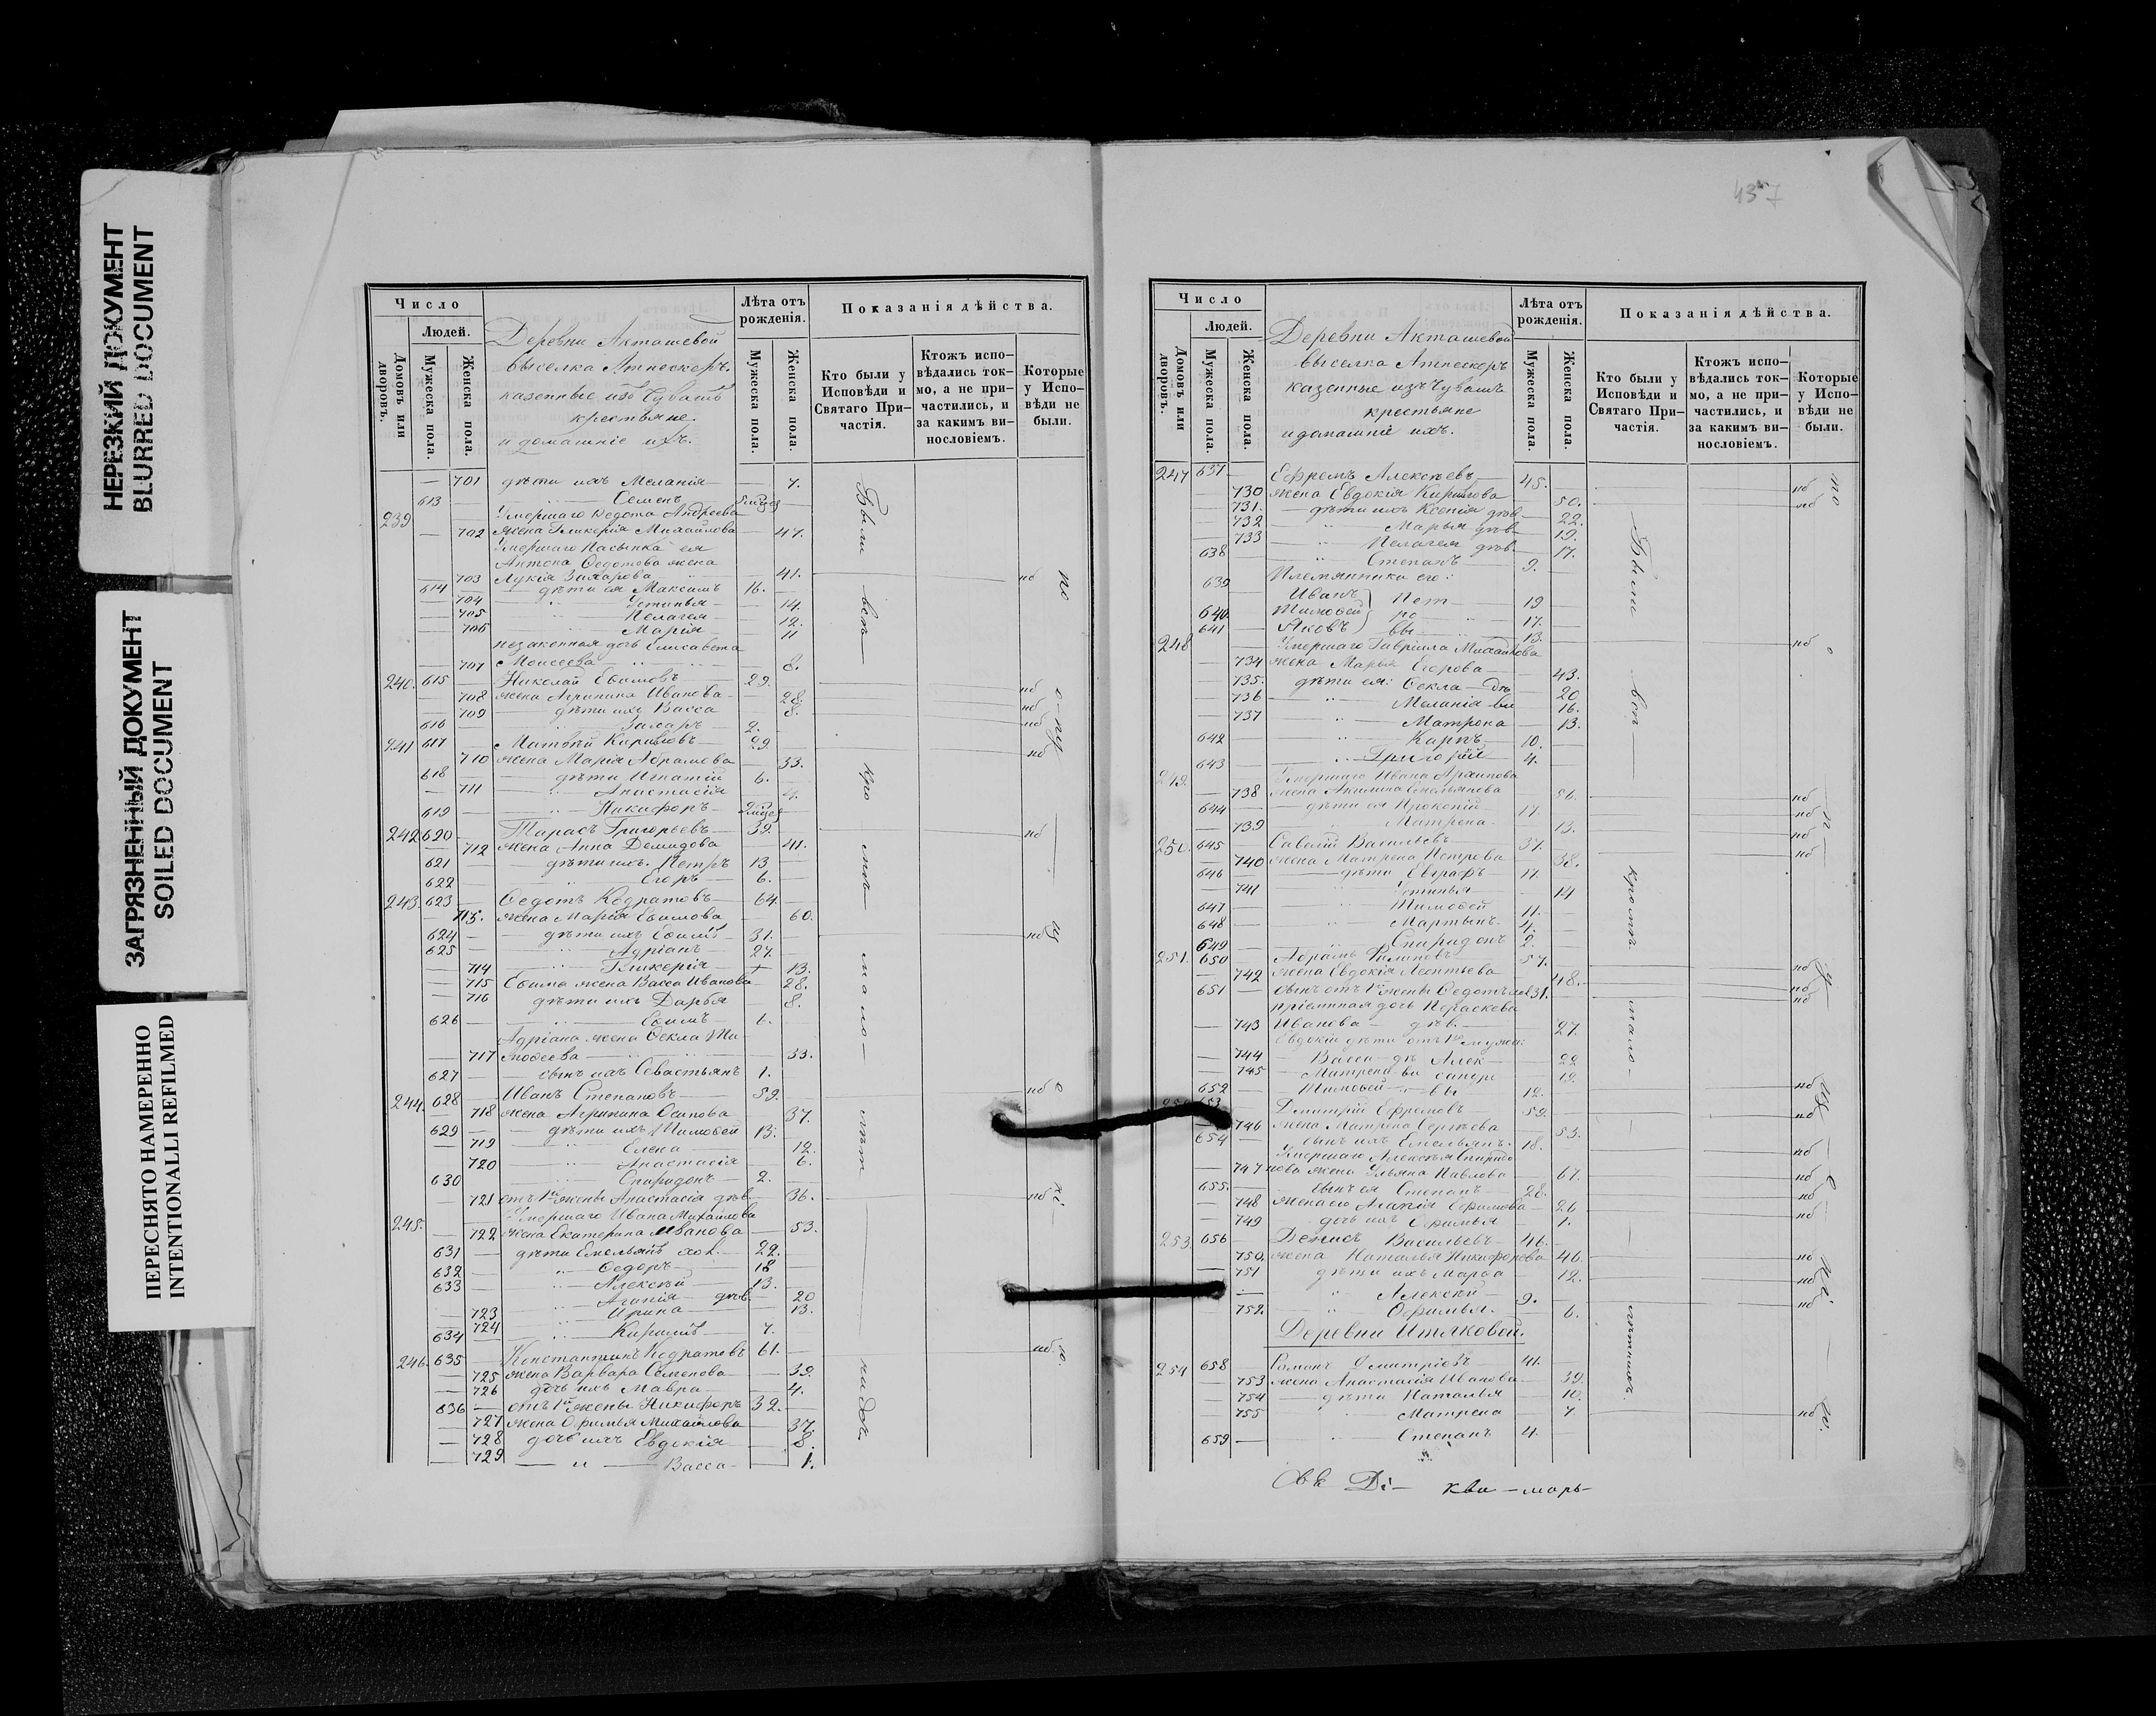 НЕРЕЗКИЙ ДОКУМЕНТ
BLURRED DOCUMENT
ЗАГРЯЗНЕННЫЙ ДОКУМЕНТ
SOILED DOCUMENT
ПЕРЕСНЯТО НАМЕРЕННО
INTENTIONALLI REFILMED
Число
Людей.
Домовъ или дворовъ.
Мужеска пола.
Женска пола.
Деревни Акташевой
выселка Атнескеръ.
казенные изъ Чувашъ
крестьяне.
и домашніе ихъ.
Лѣта отъ рожденія.
Мужеска пола.
Женска пола.
Показанія дѣйства.
Кто были у Исповѣди и Святаго При-частія.
Ктожъ испо-вѣдались ток-мо, а не при-частились, и за какимъ ви-нословіемъ.
Которые у Испо-вѣди не были.
701 дѣти ихъ Меланія 7.
613 Семенъ
239 Умершаго Ѳедота Андреева
702 жена Гликерія Михайлова 47.
Умершаго Пасынка ея
Антона Ѳедотова жена
703 Лукія Захарова 41. нб
614 дѣти ея Максимъ 16.
704 Устинья 14.
705 Пелагея 12.
706 Марія 11
незаконная дочь Елисавета
707 Моисеева 8.
240. 615 Николай Евимовъ 29. нб
708 жена Агрипина Иванова 28. нб
709 дѣти ихъ Васса 8. нб
616 Захаръ 2.
241 617 Матвѣй Кириловъ 29. нб
710 жена Марія Абрамова 33.
618 дѣти Игнатій 6.
711 Анастасія 4.
619 Никифоръ
242 620 Тарасъ Григорьевъ 39. нб
712 жена Анна Демидова 41.
621 дѣти ихъ. Петръ 13
622 Егоръ 6.
243. 623 Ѳедотъ Кодратовъ 64.
713. жена Марія Евимова 60.
624 дѣти ихъ Евимъ 31. нб
625 Адріанъ 27.
714 Гликерія 13.
715 Евима жена Васса Иванова 28.
716 дѣти ихъ Дарья 8.
626 Евимъ 6.
Адріана жена Ѳекла Ти-
717 моѳеева 33.
627 сынъ ихъ Севастьянъ 1.
244. 628 Иванъ Степановъ 59. нб
718 жена Агрипина Осипова 37.
629 дѣти ихъ Тимоѳей 15.
719 Елена 12.
720 Анастасія 6.
630 Спиридонъ 2.
721 отъ 1й жены Анастасія дѣв. 36. нб
245. Умершаго Ивана Михайлова
722 жена Екатерина Иванова 53.
631 дѣти Емельянъ хол. 22.
632 Ѳедоръ 18
633 Алексѣй 13.
723 Агапія дѣв. 20
724 Ирина 13.
634 Кирилъ 7.
246. 635 Константинъ Кодратовъ 61. нб
725 жена Варвара Семенова 39.
726 дочь ихъ Мавра 4.
636 отъ 1й жены Никифоръ 32.
727 жена Офимья Михайлова 37.
728 дочь ихъ Евдокія 8.
729 Васса 1.
437
Число
Людей.
Домовъ или дворовъ.
Мужеска пола.
Женска пола.
Деревни Акташевой
выселка Атнескеръ
казенные изъ Чувашъ
крестьяне
и домашніе ихъ.
Лѣта отъ рожденія.
Мужеска пола.
Женска пола.
Показанія дѣйства.
Кто были у Исповѣди и Святаго При-частія.
Ктожъ испо-вѣдались ток-мо, а не при-частились, и за какимъ ви-нословіемъ.
Которые у Испо-вѣди не были.
247 637 Ефремъ Алексѣевъ 45. нб
730 жена Евдокія Кирилова 50. нб
731. дѣти ихъ Ксенія дѣв 22.
732 Марья дѣв 19.
733 Пелагея дѣв. 17.
638 Степанъ 9.
639 Племянники его:
Иванъ Пет 19
640. Тимоѳей ро 17.
641 Яковъ вы 13.
248 Умершаго Гавріила Михайлова нб
734 жена Марья Егорова 43.
735. дѣти ея: Ѳекла дѣ 20
736 Меланія вы 16.
737 Матрона 13.
642 Карпъ 10.
643 Григорій 4.
249. Умершаго Ивана Архипова
738 жена Акилина Емельянова нб
644 дѣти ея Прокопій 17. нб
739 Матрена 13.
250. 645 Савелій Васильевъ 37. нб
740 жена Матрена Петрова 38. нб
646 дѣти Евграфъ 17.
741 Устинья 14
647 Тимоѳей 11.
648 Мартынъ. 4.
649 Спиридонъ 2.
251. 650 Абрамъ Филиповъ 57.
742 жена Евдокія Леонтьева 48. нб
651 сынъ отъ 1й жены Ѳедотъ хол 31. нб
пріемная дочь Параскева нб
743 Иванова дѣв. 27.
Евдокіи дѣти отъ 1го мужа:
744 Васса дѣ Алек 22
745 Матрена вы сандр 19.
652 Тимоѳей вы 12. нб
653 Димитрій Ефремовъ 59. нб
746 жена Матрена Сергѣева 53.
654 сынъ ихъ Емельянъ. 18. нб
Умершаго Алексѣя Спиридо
747 нова жена Ульяна Павлова 67. нб
655. сынъ ея Степанъ 28. нб
748 жена его Агапія Ефимова 26 нб
749 дочь ихъ Офимья 1.
253. 656 Денисъ Васильевъ 46.
750. жена Наталья Никифорова 46. нб
751 дѣти ихъ Марѳа 12. нб
Алексѣй 9. нб
752. Офимья. 6.
Деревни Итяковой.
254 658 Романъ Димитріевъ 41.
753 жена Анастасія Иванова 39.
754 дѣти Наталья 10.
755 Матрена 7. нб
659 Степанъ 4.